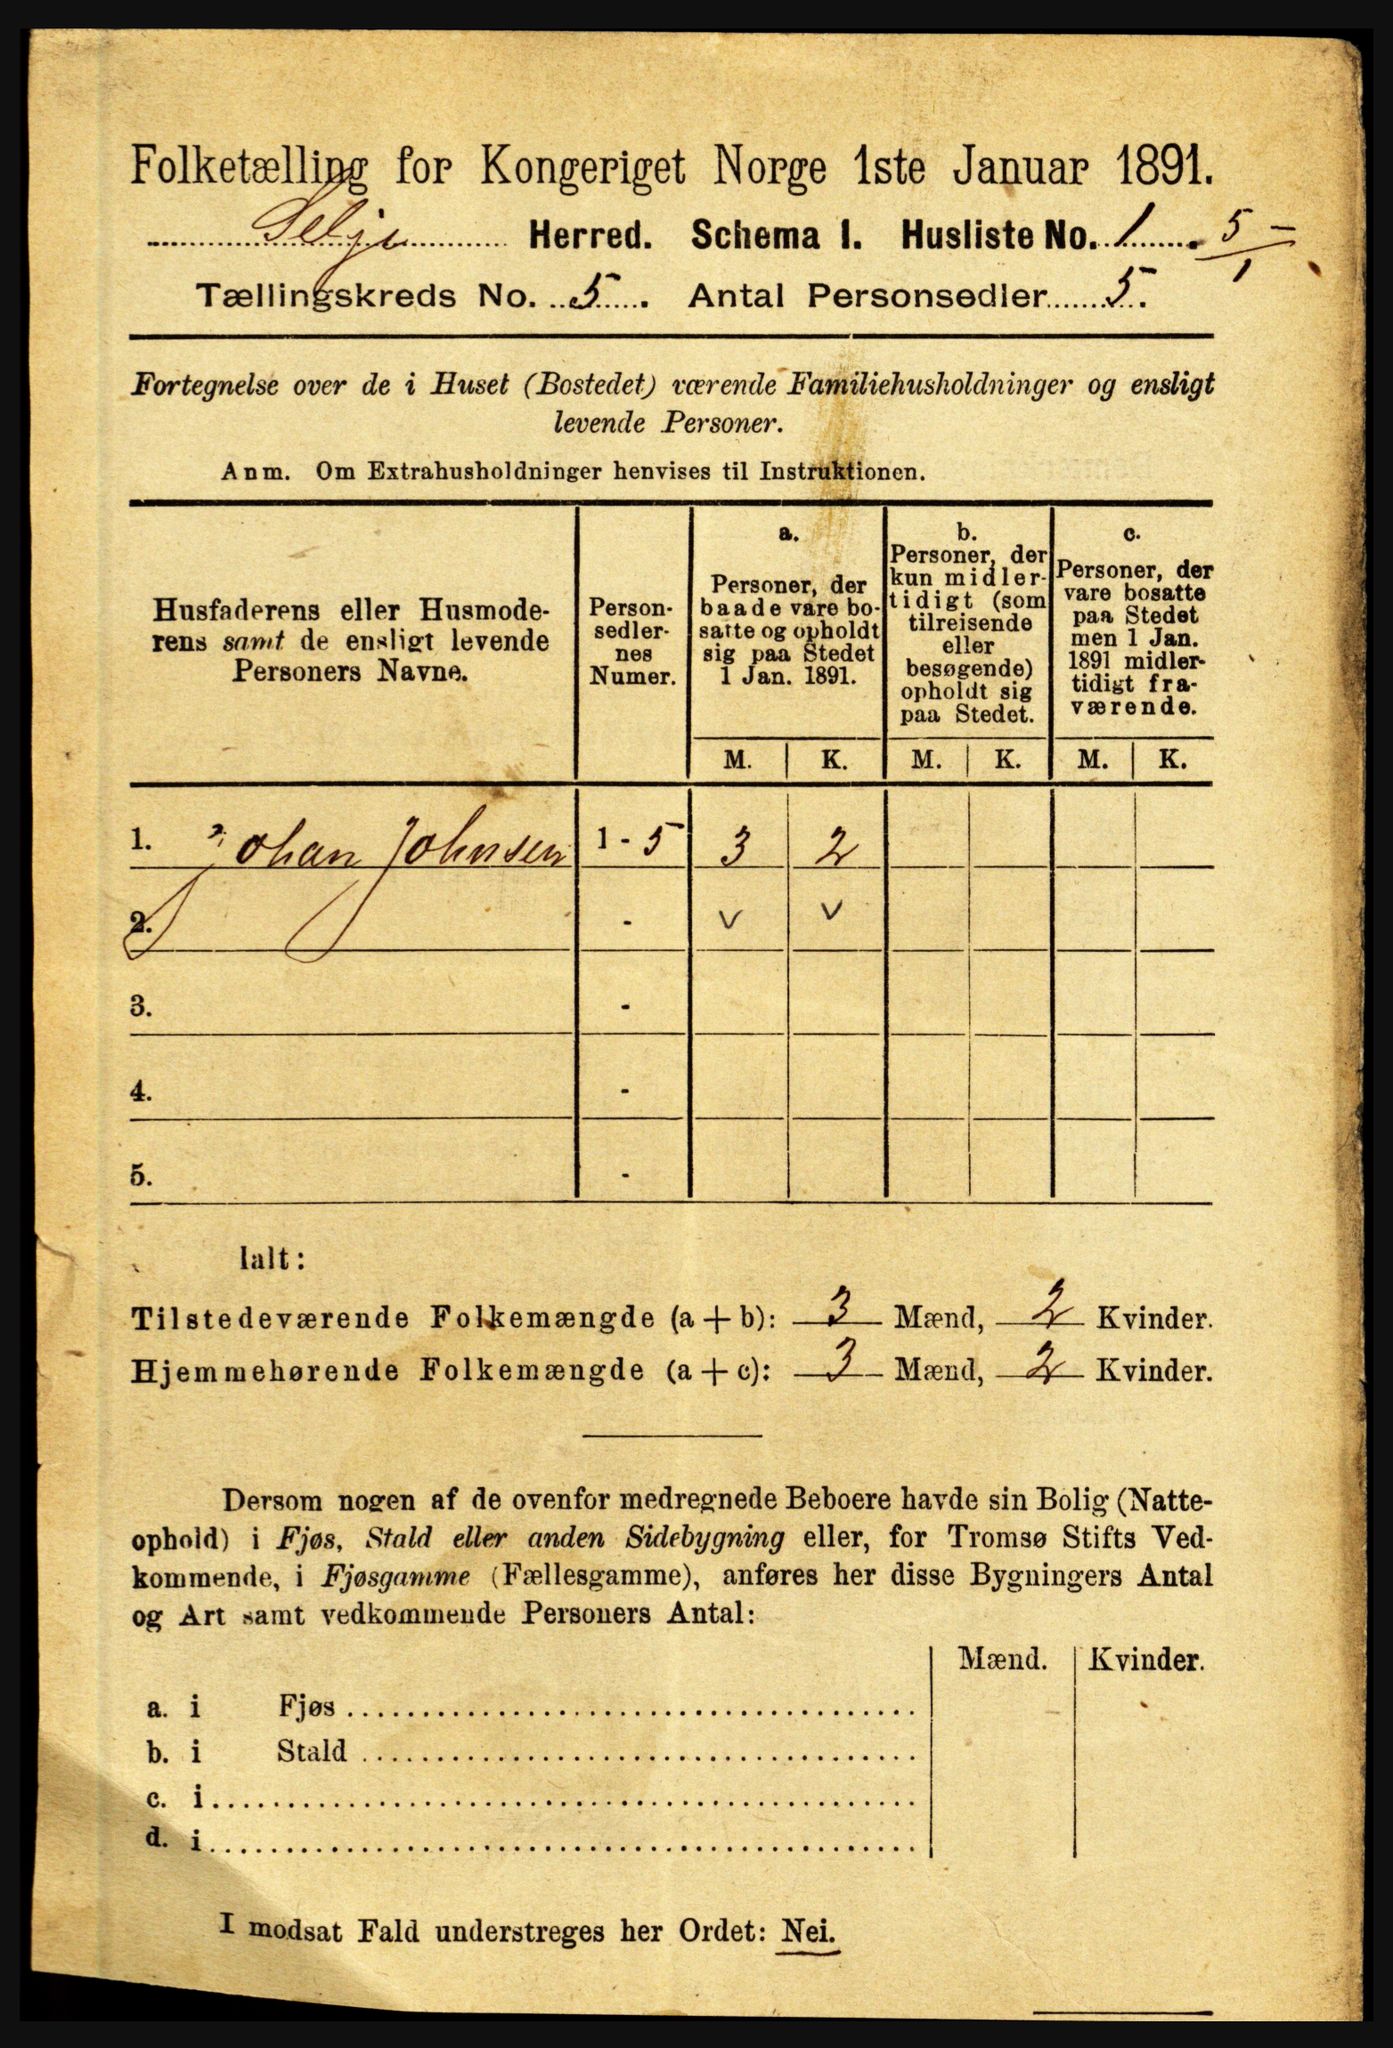 Folketælling for Kongeriget Norge 1ste Januar 1891.
Selje Herred. Schema I. Husliste No. 1. 5 - / 1
Tællingskreds No. 5. Antal Personsedler 5.
Fortegnelse over de i Huset (Bostedet) værende Familiehusholdninger og ensligt
levende Personer.
Anm. Om Extrahusholdninger henvises til Instruktionen.
Husfaderens eller Husmode-
rens samt de ensligt levende
Personers Navne.
Person-
sedler-
nes
Numer.
a.
Personer, der
baade vare bo-
satte og opholdt
sig paa Stedet
1 Jan. 1891.
b.
Personer, der
kun midler-
tidigt (som
tilreisende
eller
besøgende)
opholdt sig
paa Stedet.
c.
Personer, der
vare bosatte
paa Stedet
men 1 Jan.
1891 midler-
tidigt fra-
værende.
M. K. M. K. M. K.
1. Johan Johnsen 1 - 5 3 2
2. - v v
3. -
4. -
5. -
Ialt:
Tilstedeværende Folkemængde (a + b): 3 Mænd, 2 Kvinder.
Hjemmehørende Folkemængde (a + c): 3 Mænd, 2 Kvinder.
Dersom nogen af de ovenfor medregnede Beboere havde sin Bolig (Natte-
ophold) i Fjøs, Stald eller anden Sidebygning eller, for Tromsø Stifts Ved-
kommende, i Fjøsgamme (Fællesgamme), anføres her disse Bygningers Antal
og Art samt vedkommende Personers Antal:
Mænd. Kvinder.
a. i Fjøs
b. i Stald
c. i
d. i
I modsat Fald understreges her Ordet: Nei.